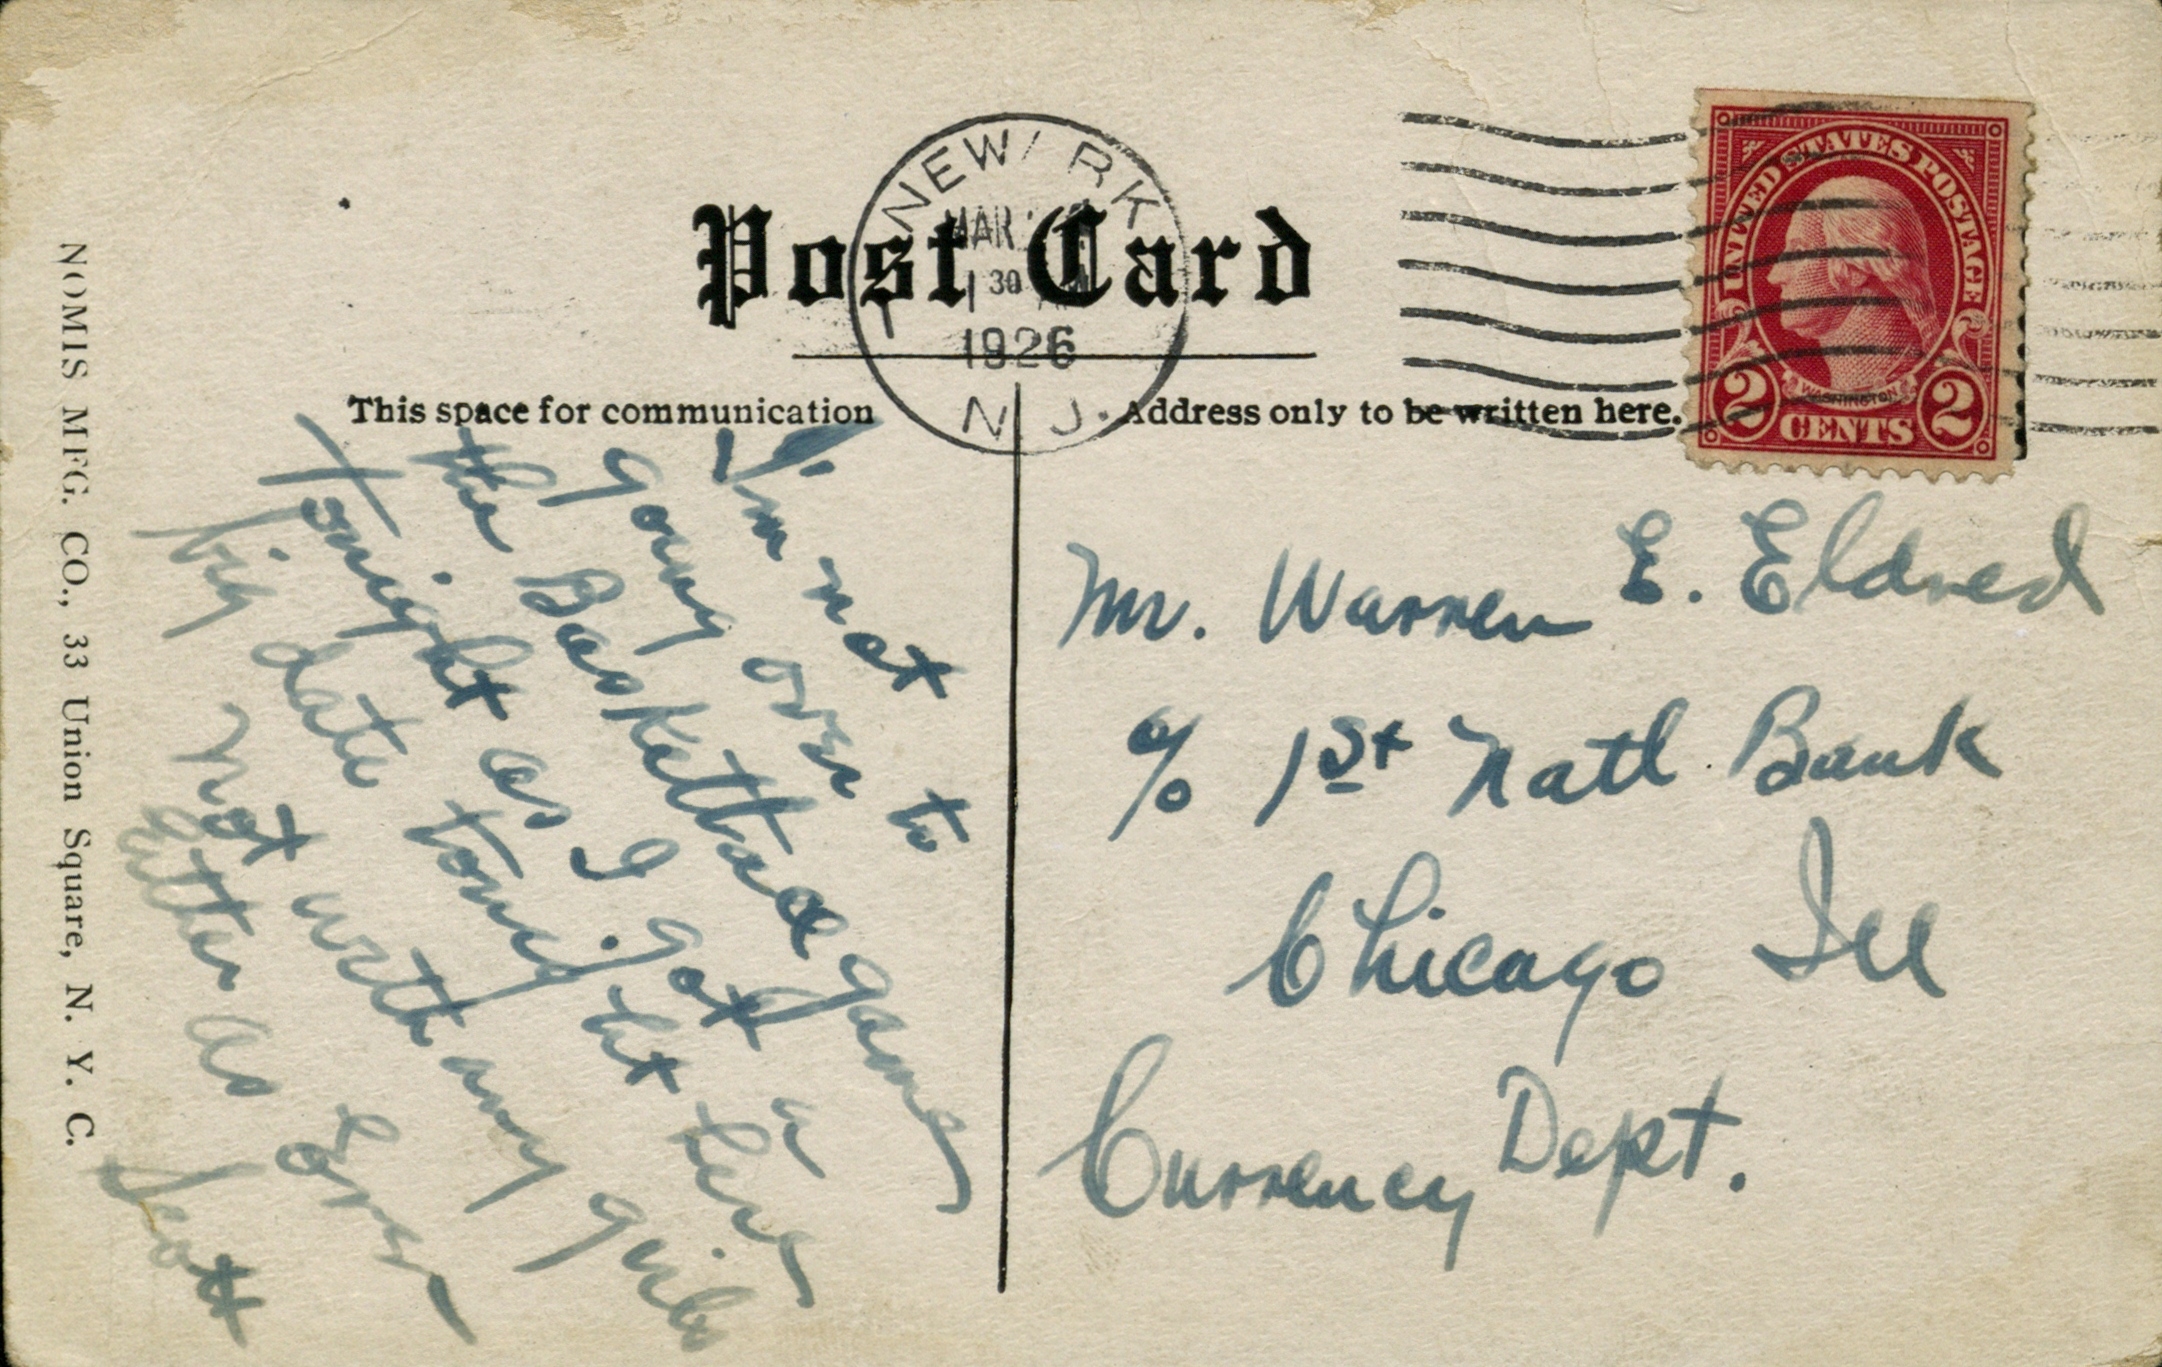 Post Card
NEW RK
MAR
1 30
1926
N. J.
UNITED STATES POSTAGE
WASHINGTON
2 CENTS 2
This space for communication
Address only to be written here.
NOMIS MFG. CO., 33 Union Square, N. Y. C.
I'm not
going over to
the Basketball games
tonight as I got a
big date tonight here
Not worth any
as Ever
Scott
Mr. Warren E. Eldred
c/o 1st Natl Bank
Chicago Ill
Currency Dept.